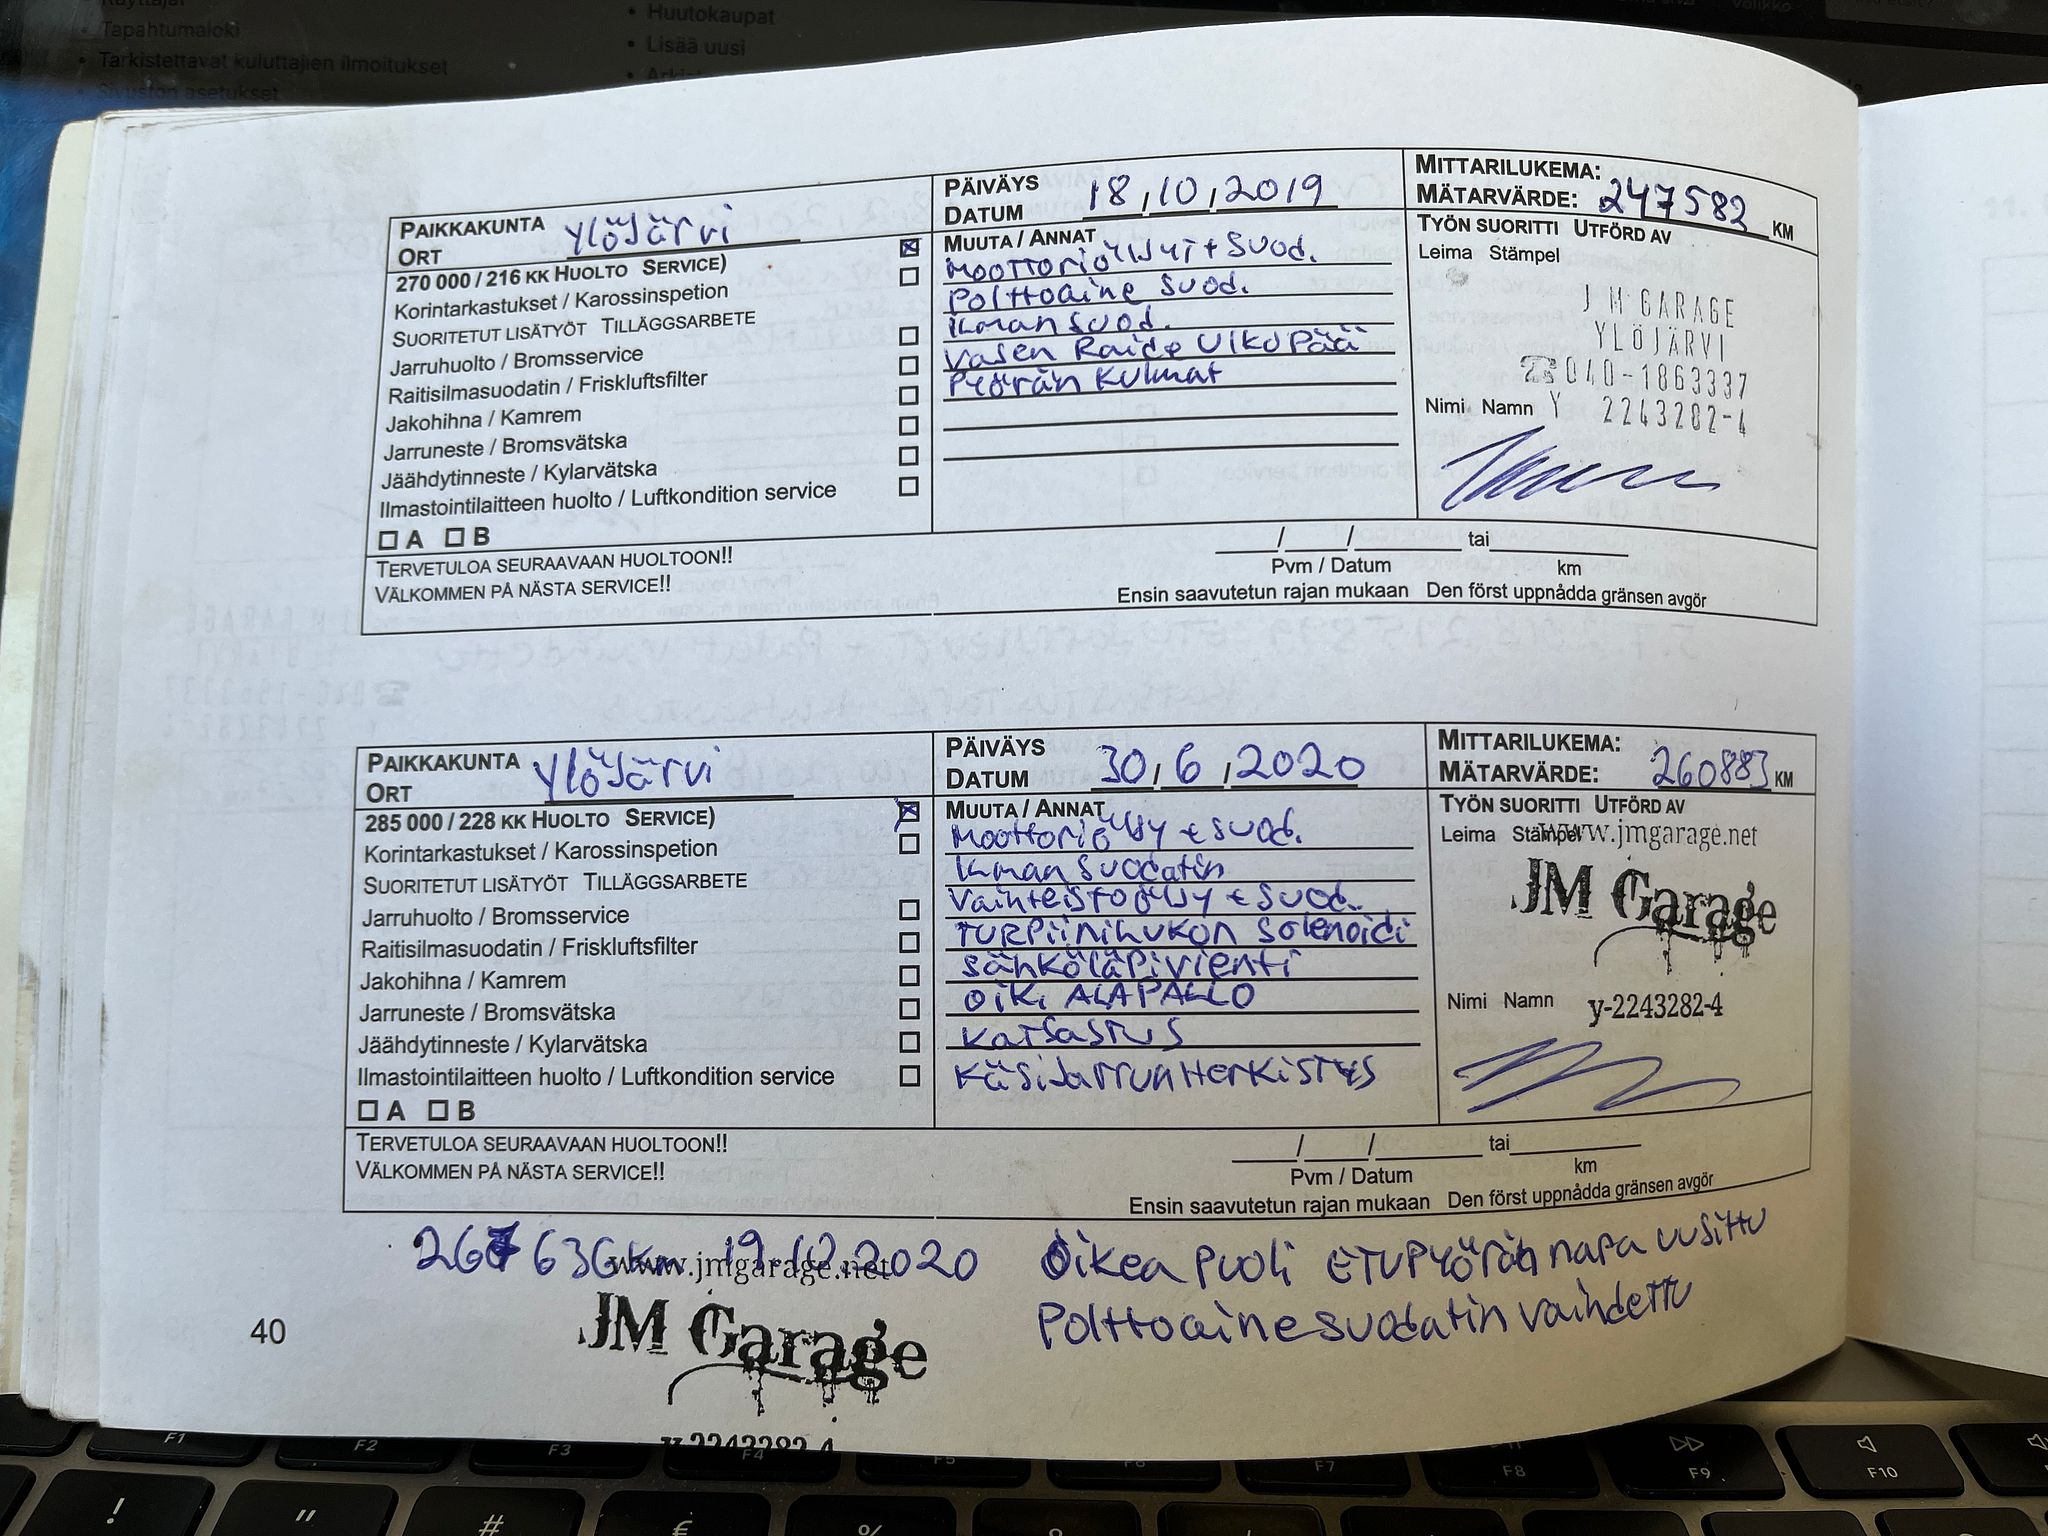 Käyttäjät
Tapahtumaloki
Tarkistettavat kuluttajien ilmoitukset
Sivuston asetukset
Huutokaupat
Lisää uusi
PAIKKAKUNTA Ylöjärvi
ORT
PÄIVÄYS
DATUM 18,10,2019
MITTARILUKEMA:
MÄTARVÄRDE: 247582 KM
270 000 / 216 KK HUOLTO SERVICE)
Korintarkastukset / Karossinspetion
SUORITETUT LISÄTYÖT TILLÄGGSARBETE
Jarruhuolto / Bromsservice
Raitisilmasuodatin / Friskluftsfilter
Jakohihna / Kamrem
Jarruneste / Bromsvätska
Jäähdytinneste / Kylarvätska
Ilmastointilaitteen huolto / Luftkondition service
A B
MUUTA / ANNAT
Moottoriöljyt + Suod.
Polttoaine Suod.
Ilman Suod.
Vasen Raide Ulko Pää
Pyörän Kulmat
TYÖN SUORITTI UTFÖRD AV
Leima Stämpel
J M GARAGE
YLÖJÄRVI
☎040-1863337
Nimi Namn Y 2243282-4
TERVETULOA SEURAAVAAN HUOLTOON!!
VÄLKOMMEN PÅ NÄSTA SERVICE!!
/ / tai
Pvm / Datum km
Ensin saavutetun rajan mukaan Den först uppnådda gränsen avgör
PAIKKAKUNTA Ylöjärvi
ORT
PÄIVÄYS
DATUM 30,6,2020
MITTARILUKEMA:
MÄTARVÄRDE: 260883 KM
285 000 / 228 KK HUOLTO SERVICE)
Korintarkastukset / Karossinspetion
SUORITETUT LISÄTYÖT TILLÄGGSARBETE
Jarruhuolto / Bromsservice
Raitisilmasuodatin / Friskluftsfilter
Jakohihna / Kamrem
Jarruneste / Bromsvätska
Jäähdytinneste / Kylarvätska
Ilmastointilaitteen huolto / Luftkondition service
A B
MUUTA / ANNAT
Moottoriöljy + Suod.
Ilman Suodatin
Vaihteistoöljy + Suod.
TURPiinilukon Solenoidi
Sähköläpivienti
Oiki ALAPALLO
Katsastus
Käsijarrun Herkistys
TYÖN SUORITTI UTFÖRD AV
Leima Stämpel
www.jmgarage.net
JM Garage
Nimi Namn y-2243282-4
TERVETULOA SEURAAVAAN HUOLTOON!!
VÄLKOMMEN PÅ NÄSTA SERVICE!!
/ / tai
Pvm / Datum km
Ensin saavutetun rajan mukaan Den först uppnådda gränsen avgör
267 636 km 19.10.2020 Oikea Puoli ETUPYörän napa uusittu
www.jmgarage.net
Polttoainesuodatin vaihdettu
JM Garage
y-2243282-4
40
F1
F2
F3
F4
F5
F6
F7
F8
F9
F10
!
"
#
€
%